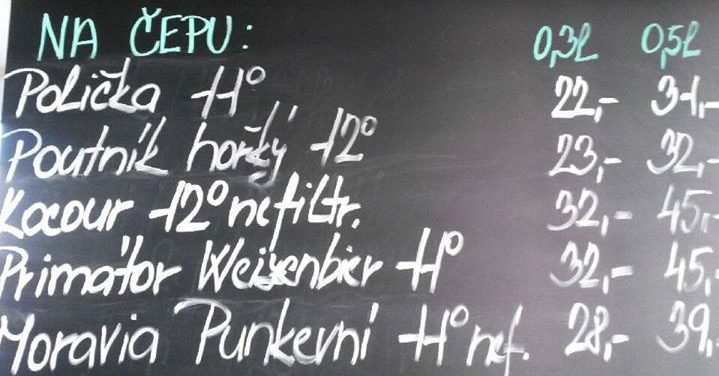 NA ČEPU: 0,3l 0,5l
Polička 11° 22,- 31,-
Poutník hořký 12° 23,- 32,-
Kocour 12° nefiltr. 32,- 45,-
Primátor Weizenbier 11° 32,- 45,-
Moravia Punkevní 11° nef. 28,- 39,-